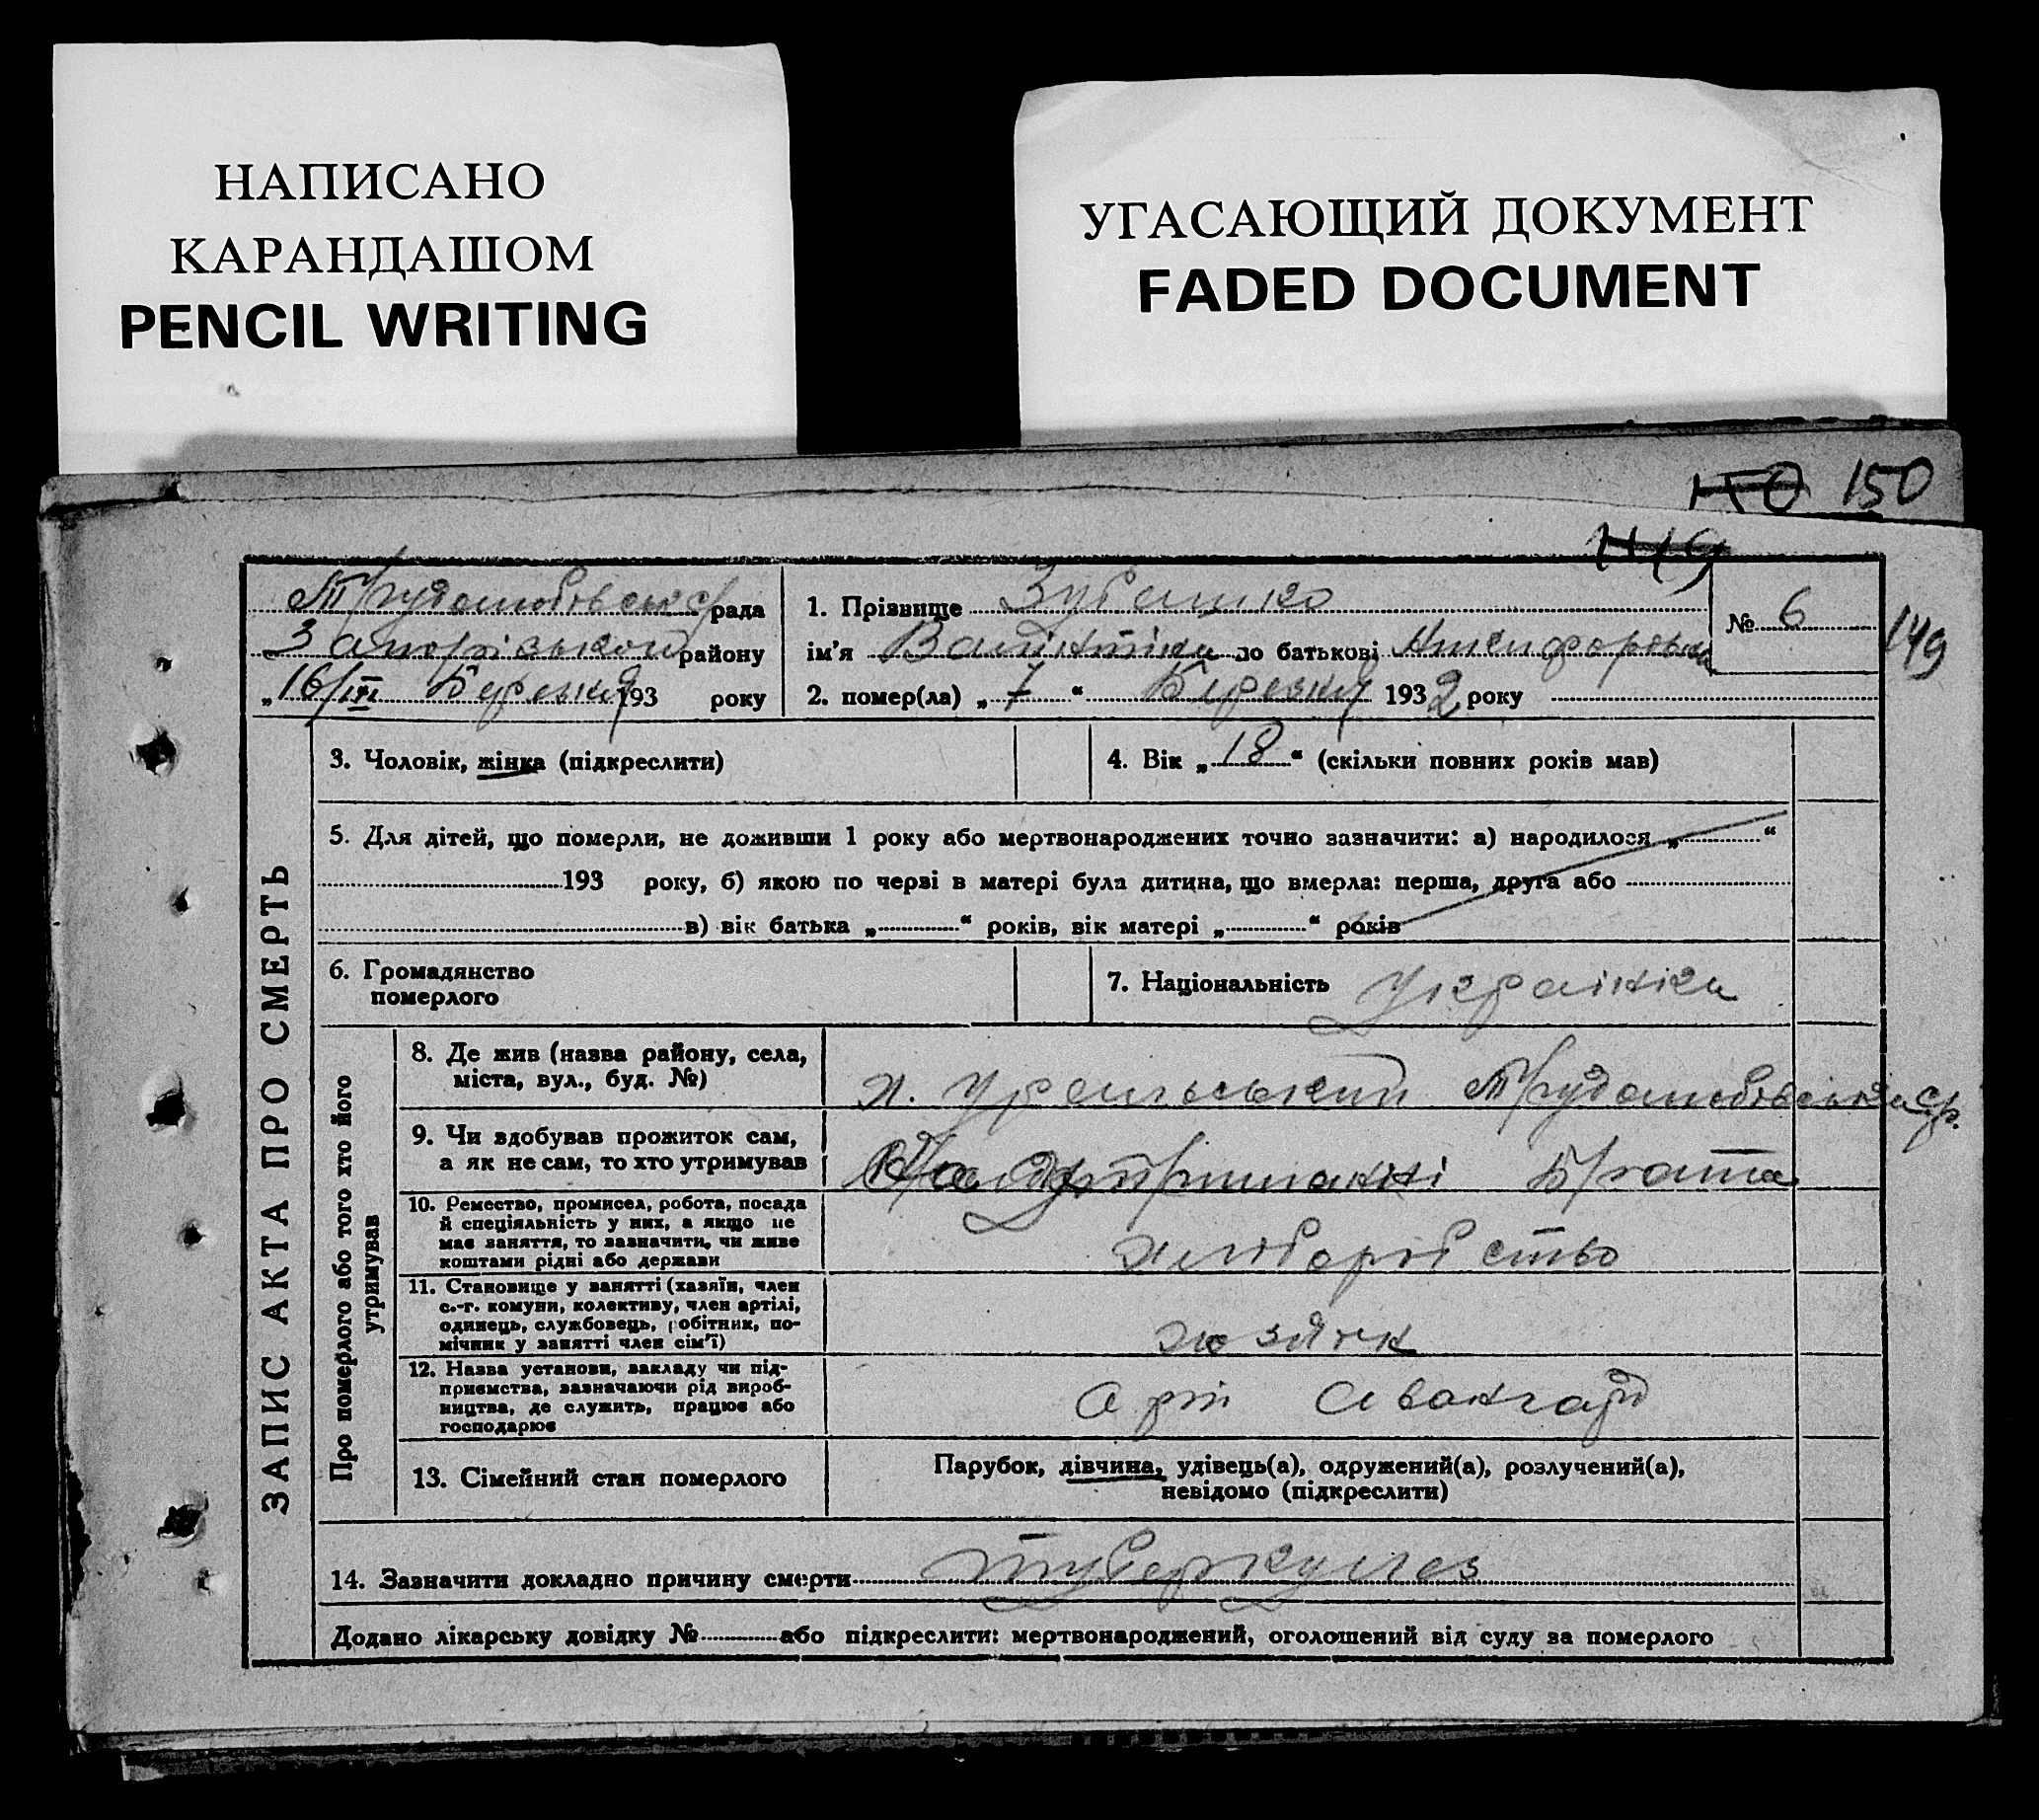 НАПИСАНО
КАРАНДАШОМ
PENCIL WRITING
УГАСАЮЩИЙ ДОКУМЕНТ
FADED DOCUMENT
150
149
ЗАПИС АКТА ПРО СМЕРТЬ
рада
району
16/III Березня 193 року
1. Прізвище Зубашко
№ 6
ім'я Валінтіна по батькові
2. помер(ла) „ 7 “ Березня 1932 року
3. Чоловік, жінка (підкреслити)
4. Вік „ 18 “ (скільки повних років мав)
5. Для дітей, що померли, не доживши 1 року або мертвонароджених точно зазначити: а) народилося „ “
193 року, б) якою по черзі в матері була дитина, що вмерла: перша, друга або
в) вік батька „ “ років, вік матері „ “ років
6. Громадянство
померлого
7. Національність Українка
Про померлого або того хто його
утримував
8. Де жив (назва району, села,
міста, вул., буд. №)
х. Уральський
9. Чи здобував прожиток сам,
а як не сам, то хто утримував
Брата
10. Ремество, промисел, робота, посада
й спеціяльність у них, а якщо не
має заняття, то зазначити, чи живе
коштами рідні або держави
хліборобство
11. Становище у занятті (хазяїн, член
с.-г. комуни, колективу, член артілі,
одинець, службовець, робітник, по-
мічник у занятті член сім'ї)
12. Назва установи, закладу чи під-
приємства, зазначаючи рід вироб-
ництва, де служить, працює або
господарює
Авангард
13. Сімейний стан померлого
Парубок, дівчина, удівець(а), одружений(а), розлучений(а),
невідомо (підкреслити)
14. Зазначити докладно причину смерти туберкульоз
Додано лікарську довідку № або підкреслити: мертвонароджений, оголошений від суду за померлого